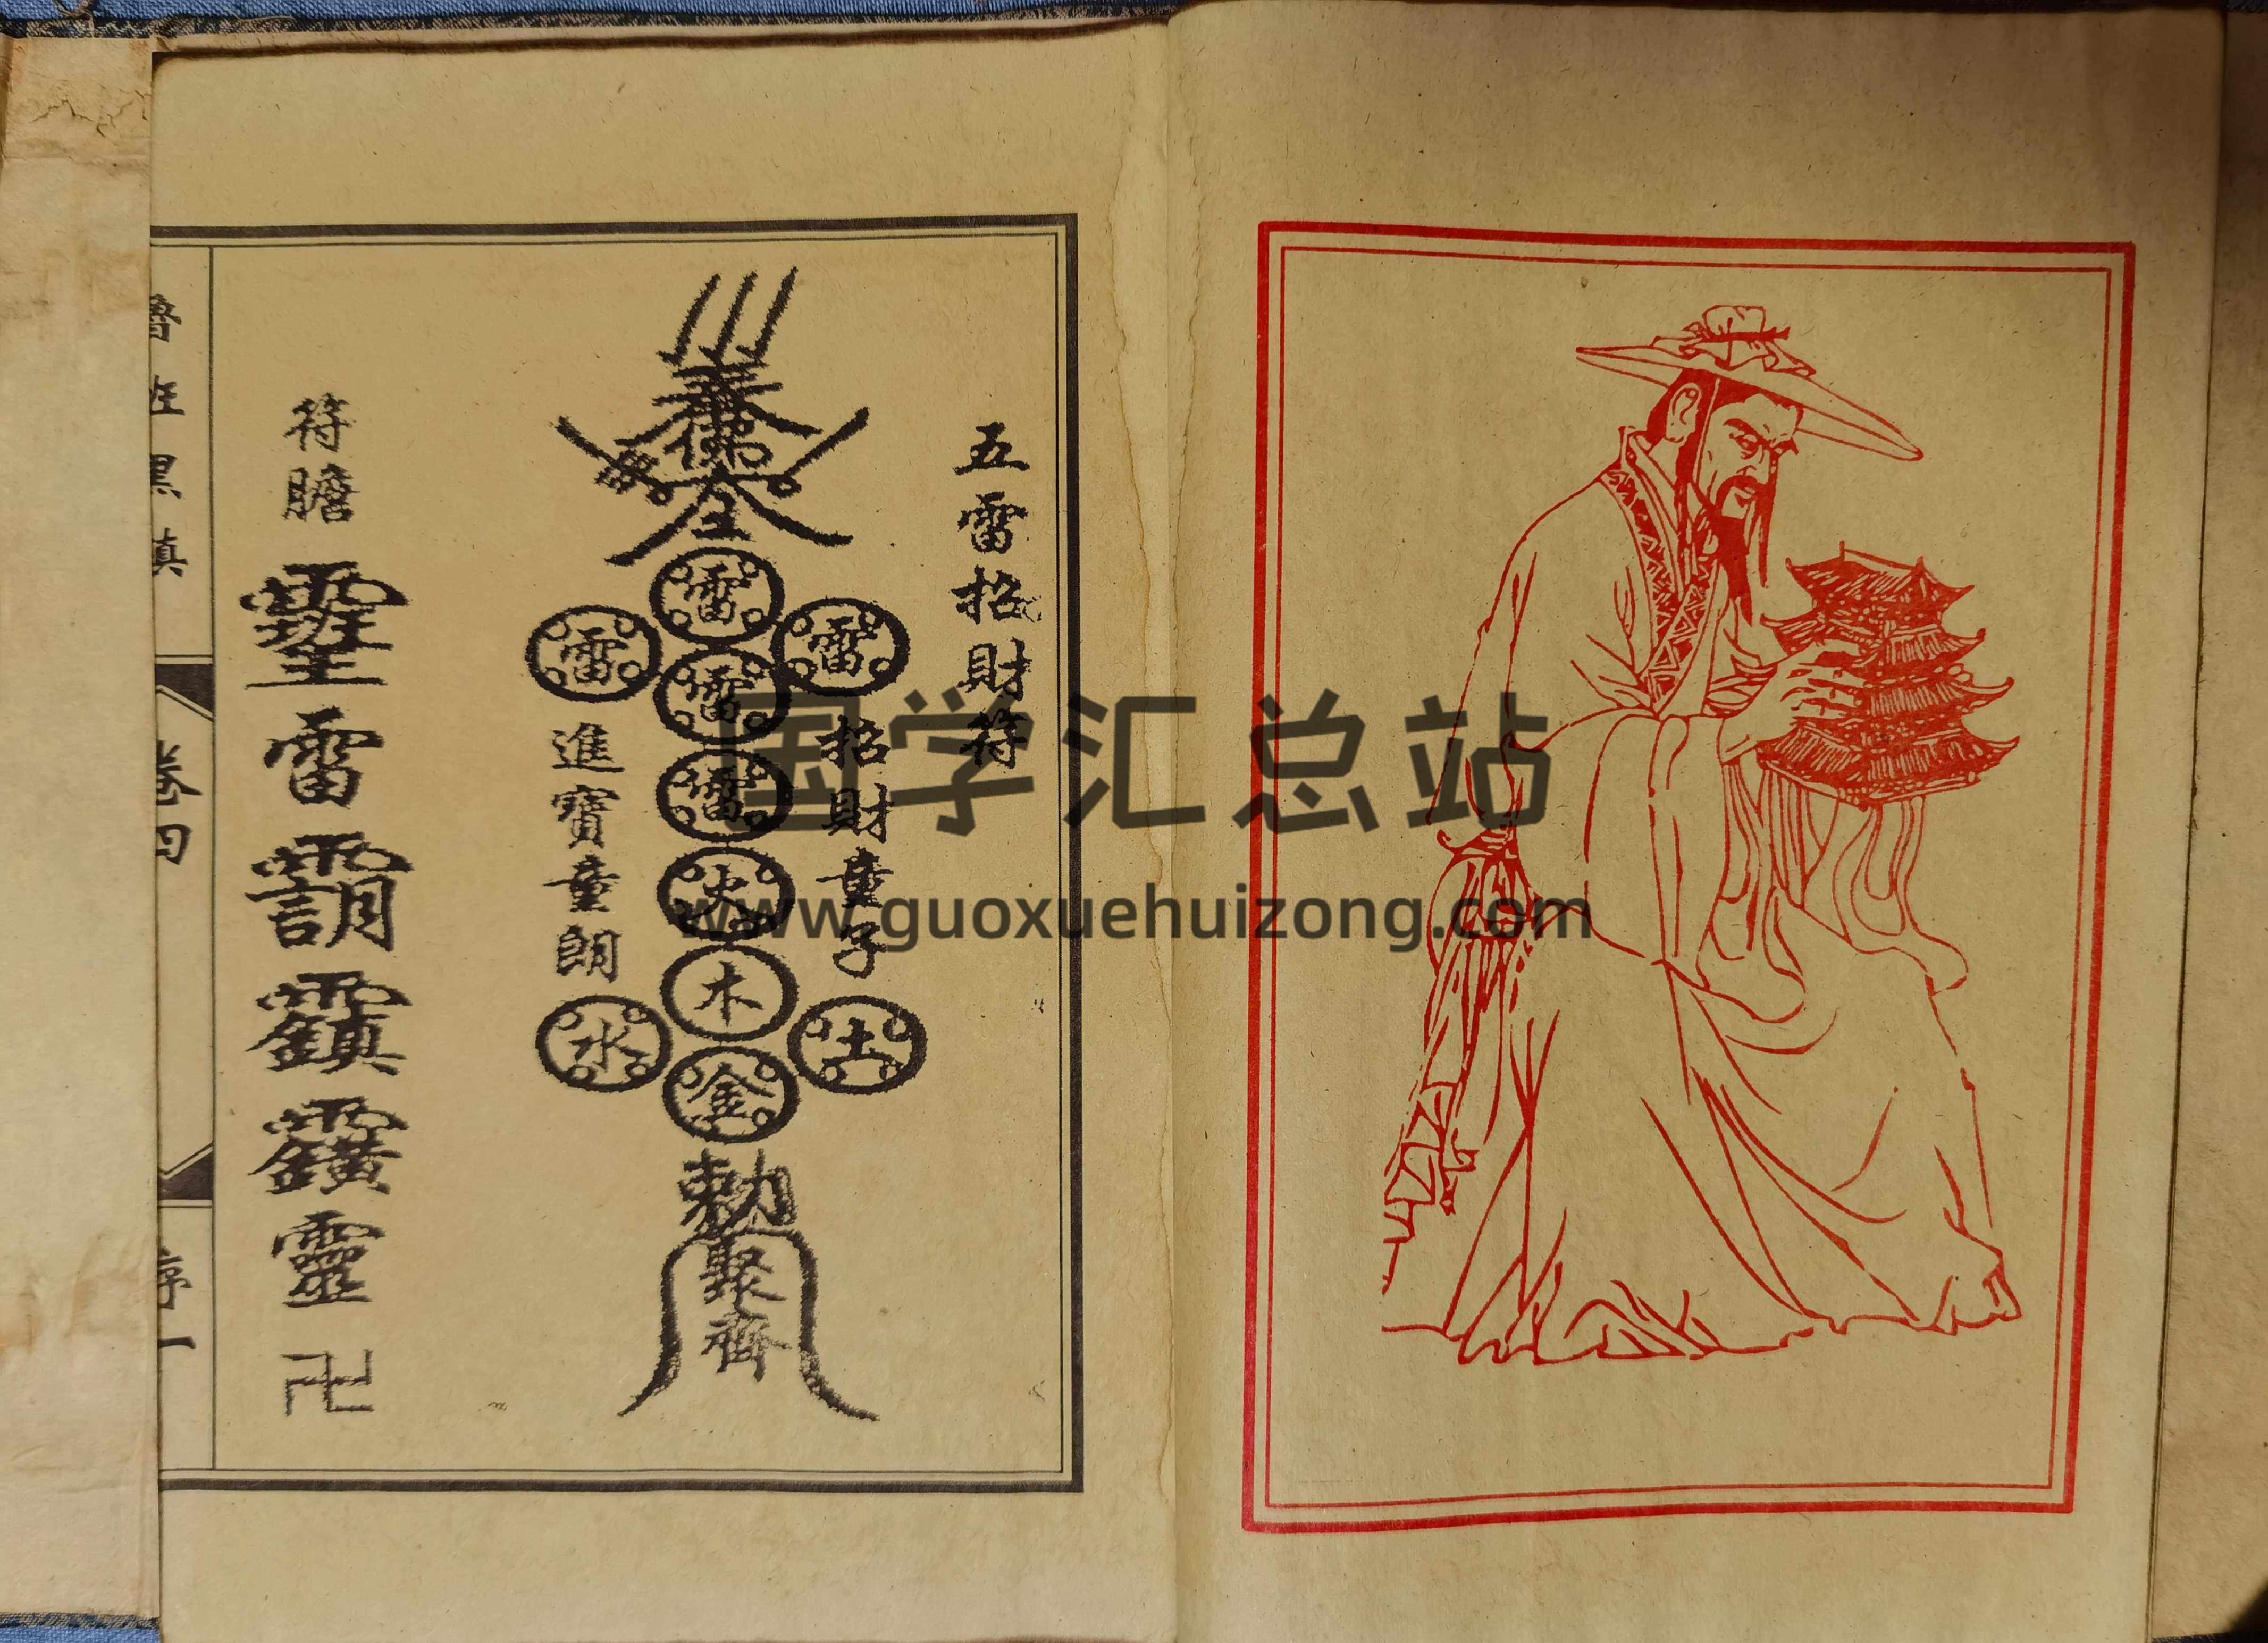 五雷招財符
雷
雷
雷
雷
雷
招財童子
進寶童朗
火
木
土
水
金
勅
聚
符膽
雷
靈
卍
魯班黑鎮
卷四
序一
国学汇总站
www.guoxuehuizong.com